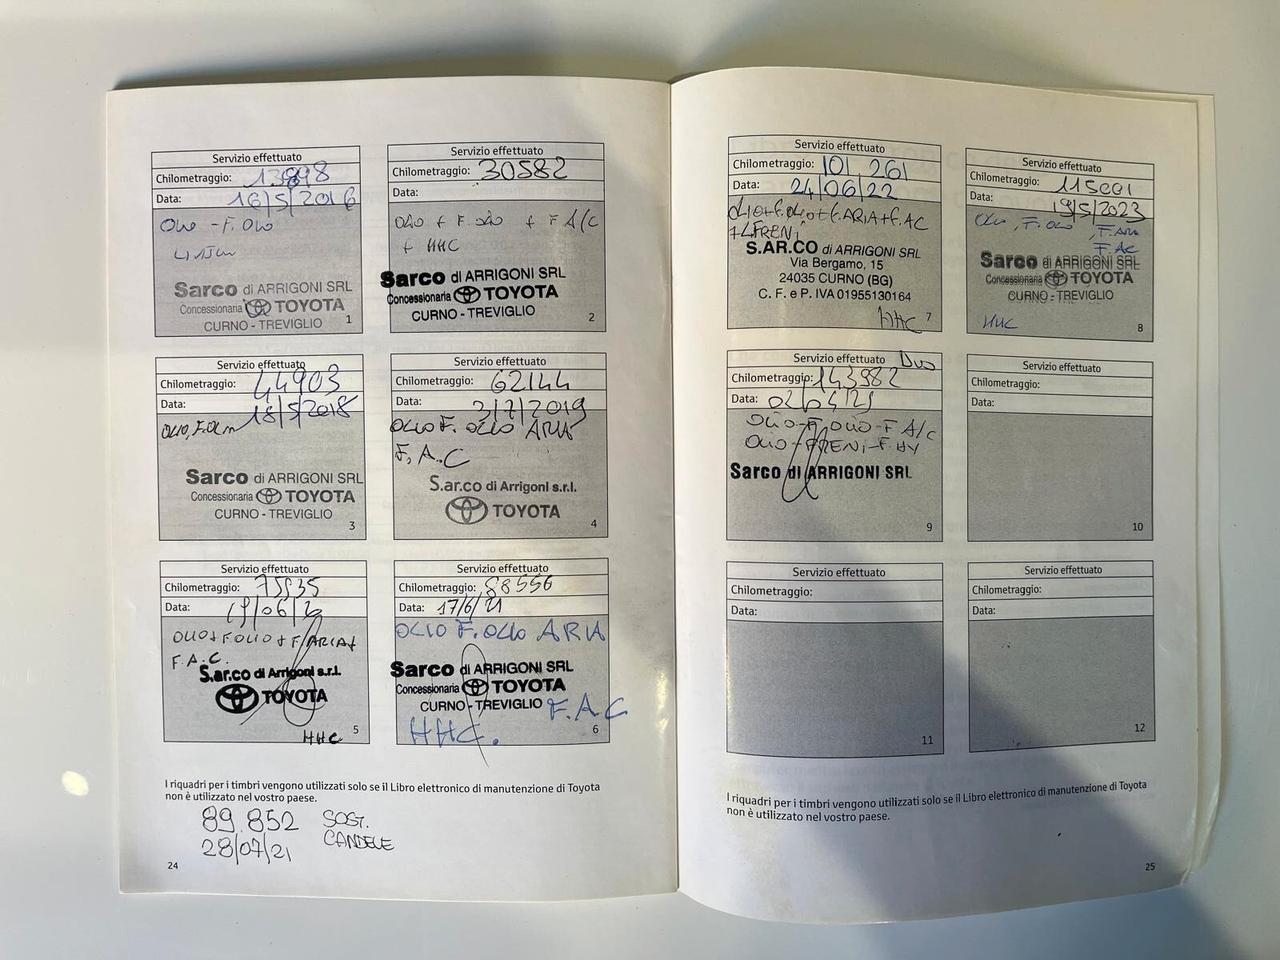 Servizio effettuato
Chilometraggio: 13898
Data: 16/5/2016
OLIO - F. OLIO
Sarco di ARRIGONI SRL
Concessionaria TOYOTA
CURNO - TREVIGLIO
1
Servizio effettuato
Chilometraggio: 30582
Data:
OLIO + F. OLIO + F A/C
+ HHC
Sarco di ARRIGONI SRL
Concessionaria TOYOTA
CURNO - TREVIGLIO
2
Servizio effettuato
Chilometraggio: 44903
Data: 18/5/2018
OLIO, F. OLIO
Sarco di ARRIGONI SRL
Concessionaria TOYOTA
CURNO - TREVIGLIO
3
Servizio effettuato
Chilometraggio: 62144
Data: 3/7/2019
OLIO F. OLIO ARIA
F, A.C
S.ar.co di Arrigoni s.r.l.
TOYOTA
4
Servizio effettuato
Chilometraggio: 75935
Data: 19/06/20
OLIO + F OLIO + F/ARIA +
F.A.C.
S.ar.co di Arrigoni s.r.l.
TOYOTA
HHC
5
Servizio effettuato
Chilometraggio: 88556
Data: 17/6/21
OLIO F. OLIO ARIA
Sarco di ARRIGONI SRL
Concessionaria TOYOTA
CURNO - TREVIGLIO F.A.C
HHC.
6
I riquadri per i timbri vengono utilizzati solo se il Libro elettronico di manutenzione di Toyota
non è utilizzato nel vostro paese.
89.852 SOST.
28/07/21 CANDELE
24
Servizio effettuato
Chilometraggio: 101.261
Data: 24/06/22
OLIO + f. OLIO + f. ARIA + f. AC
+ L FRENI
S.AR.CO di ARRIGONI SRL
Via Bergamo, 15
24035 CURNO (BG)
C. F. e P. IVA 01955130164
HHC
7
Servizio effettuato
Chilometraggio: 115001
Data: 19/5/2023
OLIO, F. OLIO, F. ARIA
F. AC
Sarco di ARRIGONI SRL
Concessionaria TOYOTA
CURNO - TREVIGLIO
HHC
8
Servizio effettuato
Chilometraggio: 143982
Data:
OLIO - F. OLIO - F A/C
OLIO - FRENI - F. HY
Sarco di ARRIGONI SRL
9
Servizio effettuato
Chilometraggio:
Data:
10
Servizio effettuato
Chilometraggio:
Data:
11
Servizio effettuato
Chilometraggio:
Data:
12
I riquadri per i timbri vengono utilizzati solo se il Libro elettronico di manutenzione di Toyota
non è utilizzato nel vostro paese.
25